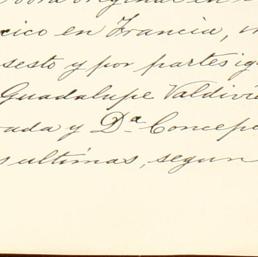 original en
xico en Francia,
sesto y por partes ig
Guadalupe Valdivi
rada y Dª Concep
s ultimas, segun